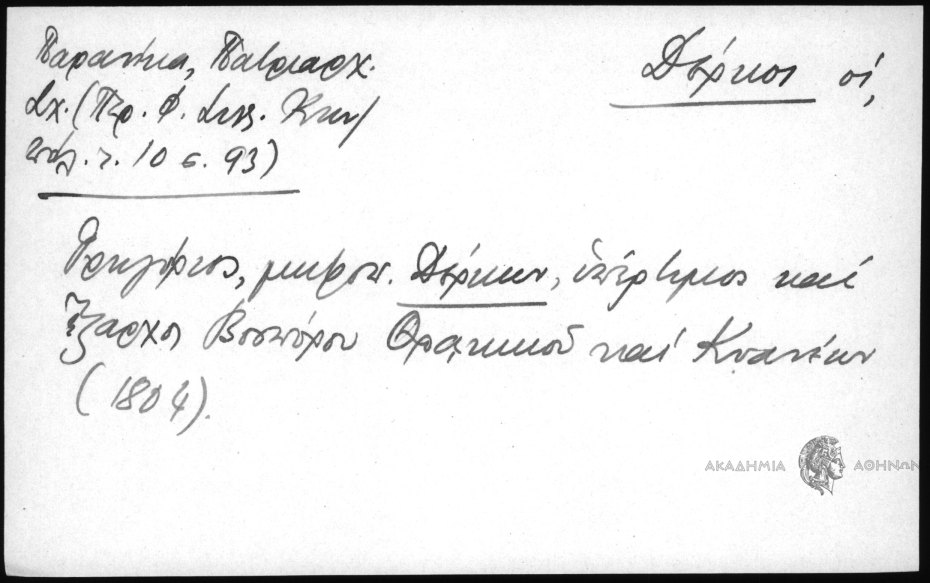 Παρανίκα, Πατριαρχ.
Σχ. (Περ. Φ. Συλ. Κων/
πόλ. τ. 10 σ. 93)
Δέρκοι οἱ,
Γρηγόριος, μητροπ. Δέρκων, ὑπέρτιμος καί
ἔξαρχος Βοσπόρου Θρακικοῦ καί Κυανέων
(1804).
ΑΚΑΔΗΜΙΑ ΑΘΗΝΩΝ